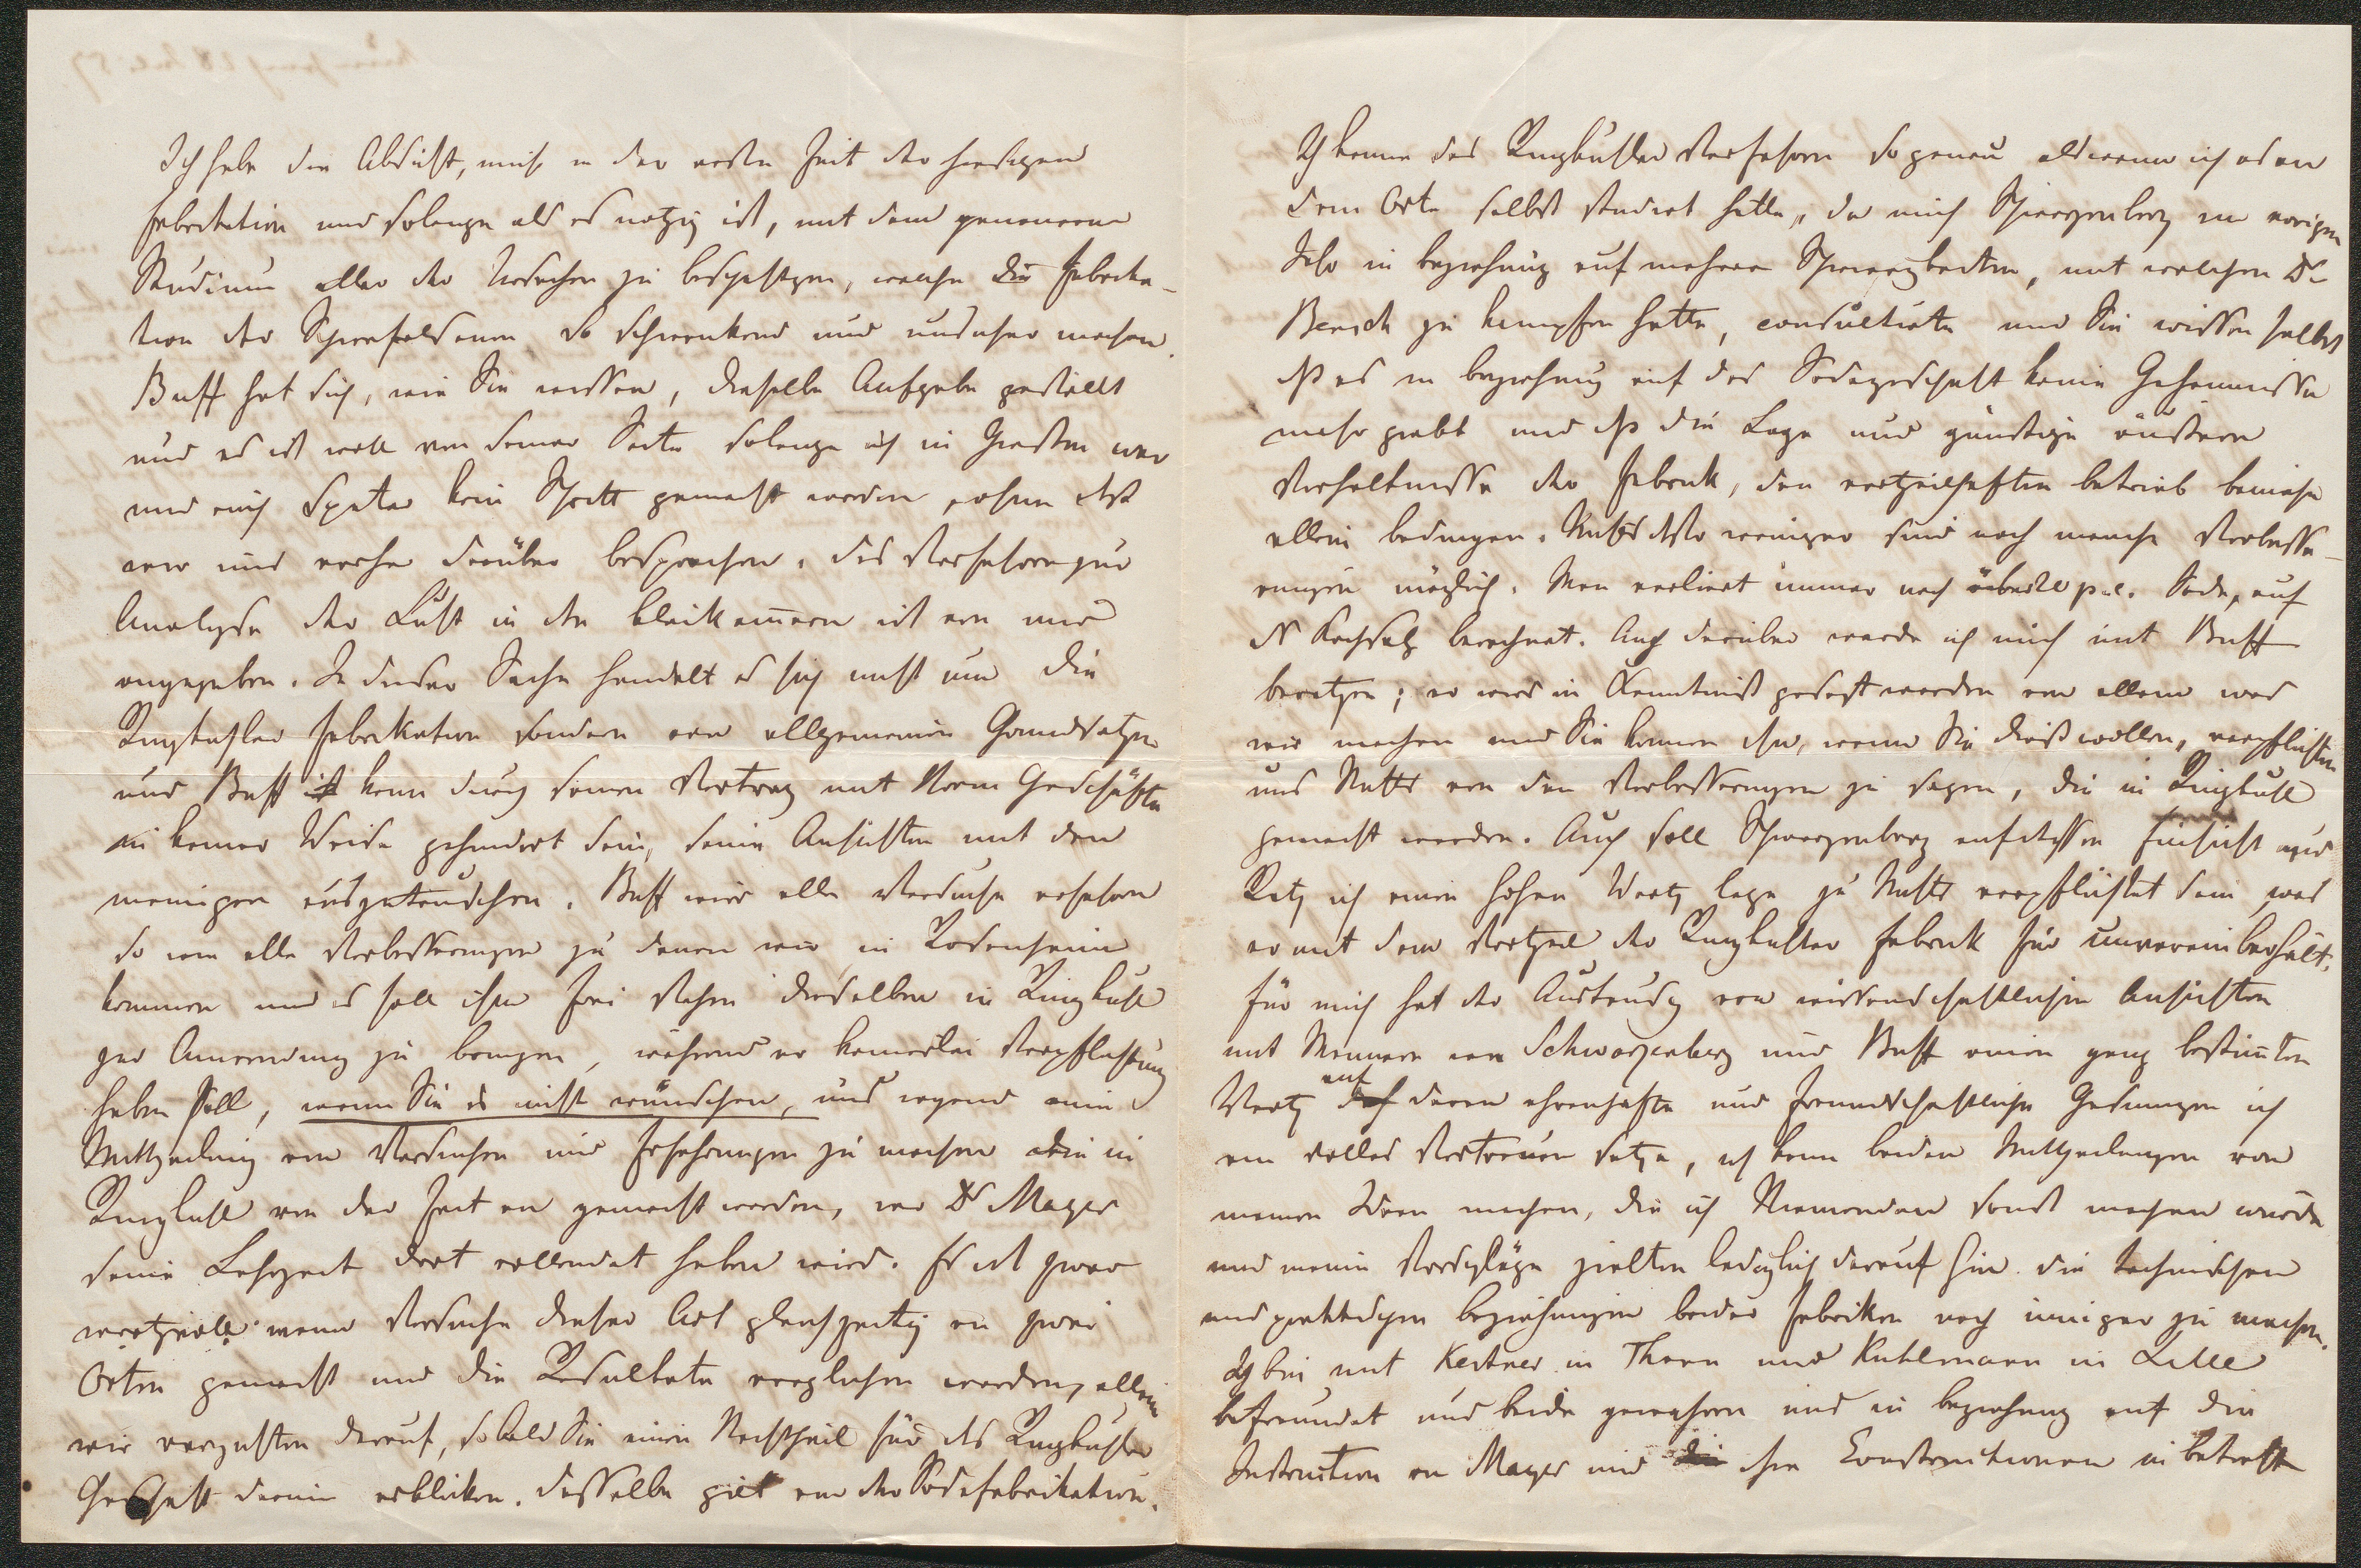 Ich habe die Absicht, mich in der ersten Zeit der hiesigen
Fabrikation und solange als es nötig ist, mit dem genaueren
Studium aller der Ursachen zu beschäftigen, welche die Fabrika-
tion der Schwefelsäure so schwankend und unsicher machen.
Buff hat sich, wie Sie wissen, dieselbe Aufgabe gestellt
und es ist wohl von seiner Seite solange ich in Giessen war
und auch später kein Schritt gemacht worden, ohne dass
wir uns vorher darüber besprachen. Das Verfahren zur
Analyse der Luft in den Bleikam̄ern ist von mir
angegeben. In dieser Sache handelt es sich nicht um die
Ringkuhler Fabrikation sondern von allgemeinen Grundsätzen
und Buff kann durch seinen Vertrag mit Ihrem Geschäfte
in keiner Weise gehindert sein, seine Ansichten mit den
meinigen auszutauschen. Buff wird alle Versuche erfahren
so wie alle Verbesserungen zu denen wir in Rosenheim
kommen und es soll ihm frei stehen dieselben in Ringkuhl
zur Anwendung zu bringen, während er keinerlei Verpflichtung
haben soll, wenn Sie es nicht wünschen, uns irgend eine
Mittheilung von Versuchen und Erfahrungen zu machen die in
Ringkuhl von der Zeit an gemacht werden, wo Dr Mayer
seine Lehrzeit dort vollendet haben wird. Es ist zwar
werthvoll wenn Versuche dieser Art gleichzeitig an zwei
Orten gemacht und die Resultate verglichen werden, allein
wir verzichten darauf, sobald Sie einen Nachtheil für das Ringkuhler
Geschäft darin erblicken. Dasselbe gilt von der Sodafabrikation.
Ich kenne das Ringkuhler Verfahren so genau als wenn ich es an
dem Orte selbst studiert hätte, da mich Schwarzenberg im vorigen
Jahr in Beziehung auf mehrere Schwierigkeiten, mit welchen Dr
Bensch zu kämpfen hatte, consultirte und Sie wissen selbst
dass es in Beziehung auf das Sodageschäft keine Geheimnisse
mehr giebt und dass die Lage und günstige äussere
Verhältnisse der Fabrik, den vortheilhaften Betrieb beinahe
allein bedingen. Nichts desto weniger sind noch manche Verbesse-
rungen möglich. Man verliert immer noch p.c. Soda, auf
das Kochsalz berechnet. Auch darüber werde ich mich mit Buff
berathen; er wird in Kenntniß gesetzt werden von allem was
wir machen und Sie können ihn, wenn Sie dieß wollen, verpflichten
uns Nichts von den Verbesserungen zu sagen, die in Ringkuhl
gemacht werden. Auch soll Schwarzenberg auf dessen Einsicht und
Rath ich einen hohen Werth lege zu Nichts verpflichtet sein was
er mit dem Vortheil der Ringkuhler Fabrik für unvereinbar hält.
Für mich hat der Austausch von wissenschaftlichen Ansichten
mit Männern wie Schwarzenberg und Buff einen ganz bestim̄ten
Werth auf deren ehrenhafte und freundschaftliche Gesinnungen ich
ein volles Vertrauen setze, ich kann beiden Mittheilungen von
meinen Ideen machen, die ich Niemanden sonst machen würde
und meine Vorschläge zielten lediglich darauf hin die technischen
und praktischen Beziehungen beider Fabriken noch inniger zu machen.
Ich bin mit Kestner in Thann und Kuhlmann in Lille
befreundet und beide gewähren uns in Beziehung auf die
Instruction an Mayer und ihre Constructionen in Betreff